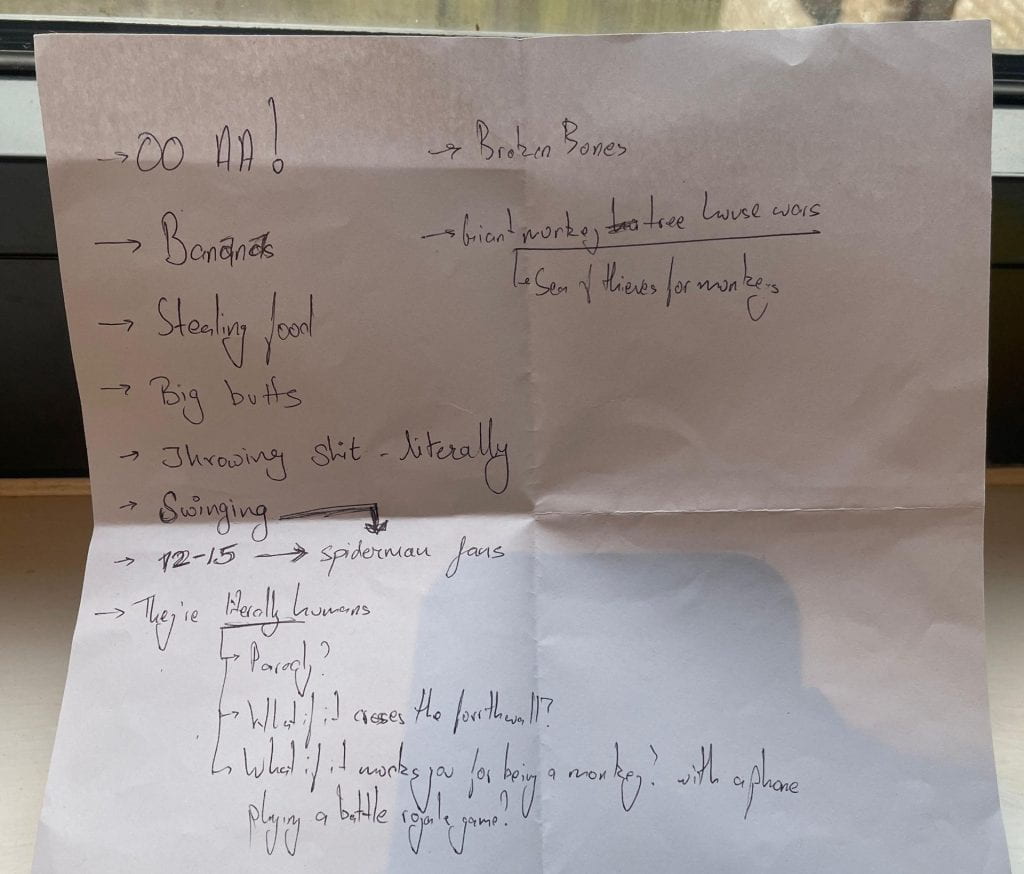 → OO AA!
→ Bananas
→ Stealing food
→ Big butts
→ Throwing shit - literally
→ Swinging
→ 12-15 → spiderman fans
→ They're literally humans
→ Parody?
→ What if it crosses the fourthwall?
What if it mocks you for being a monkey? with a phone
playing a battle royale game?
→ Broken Bones
→ Giant monkey tree house wars
Sea of thieves for monkeys